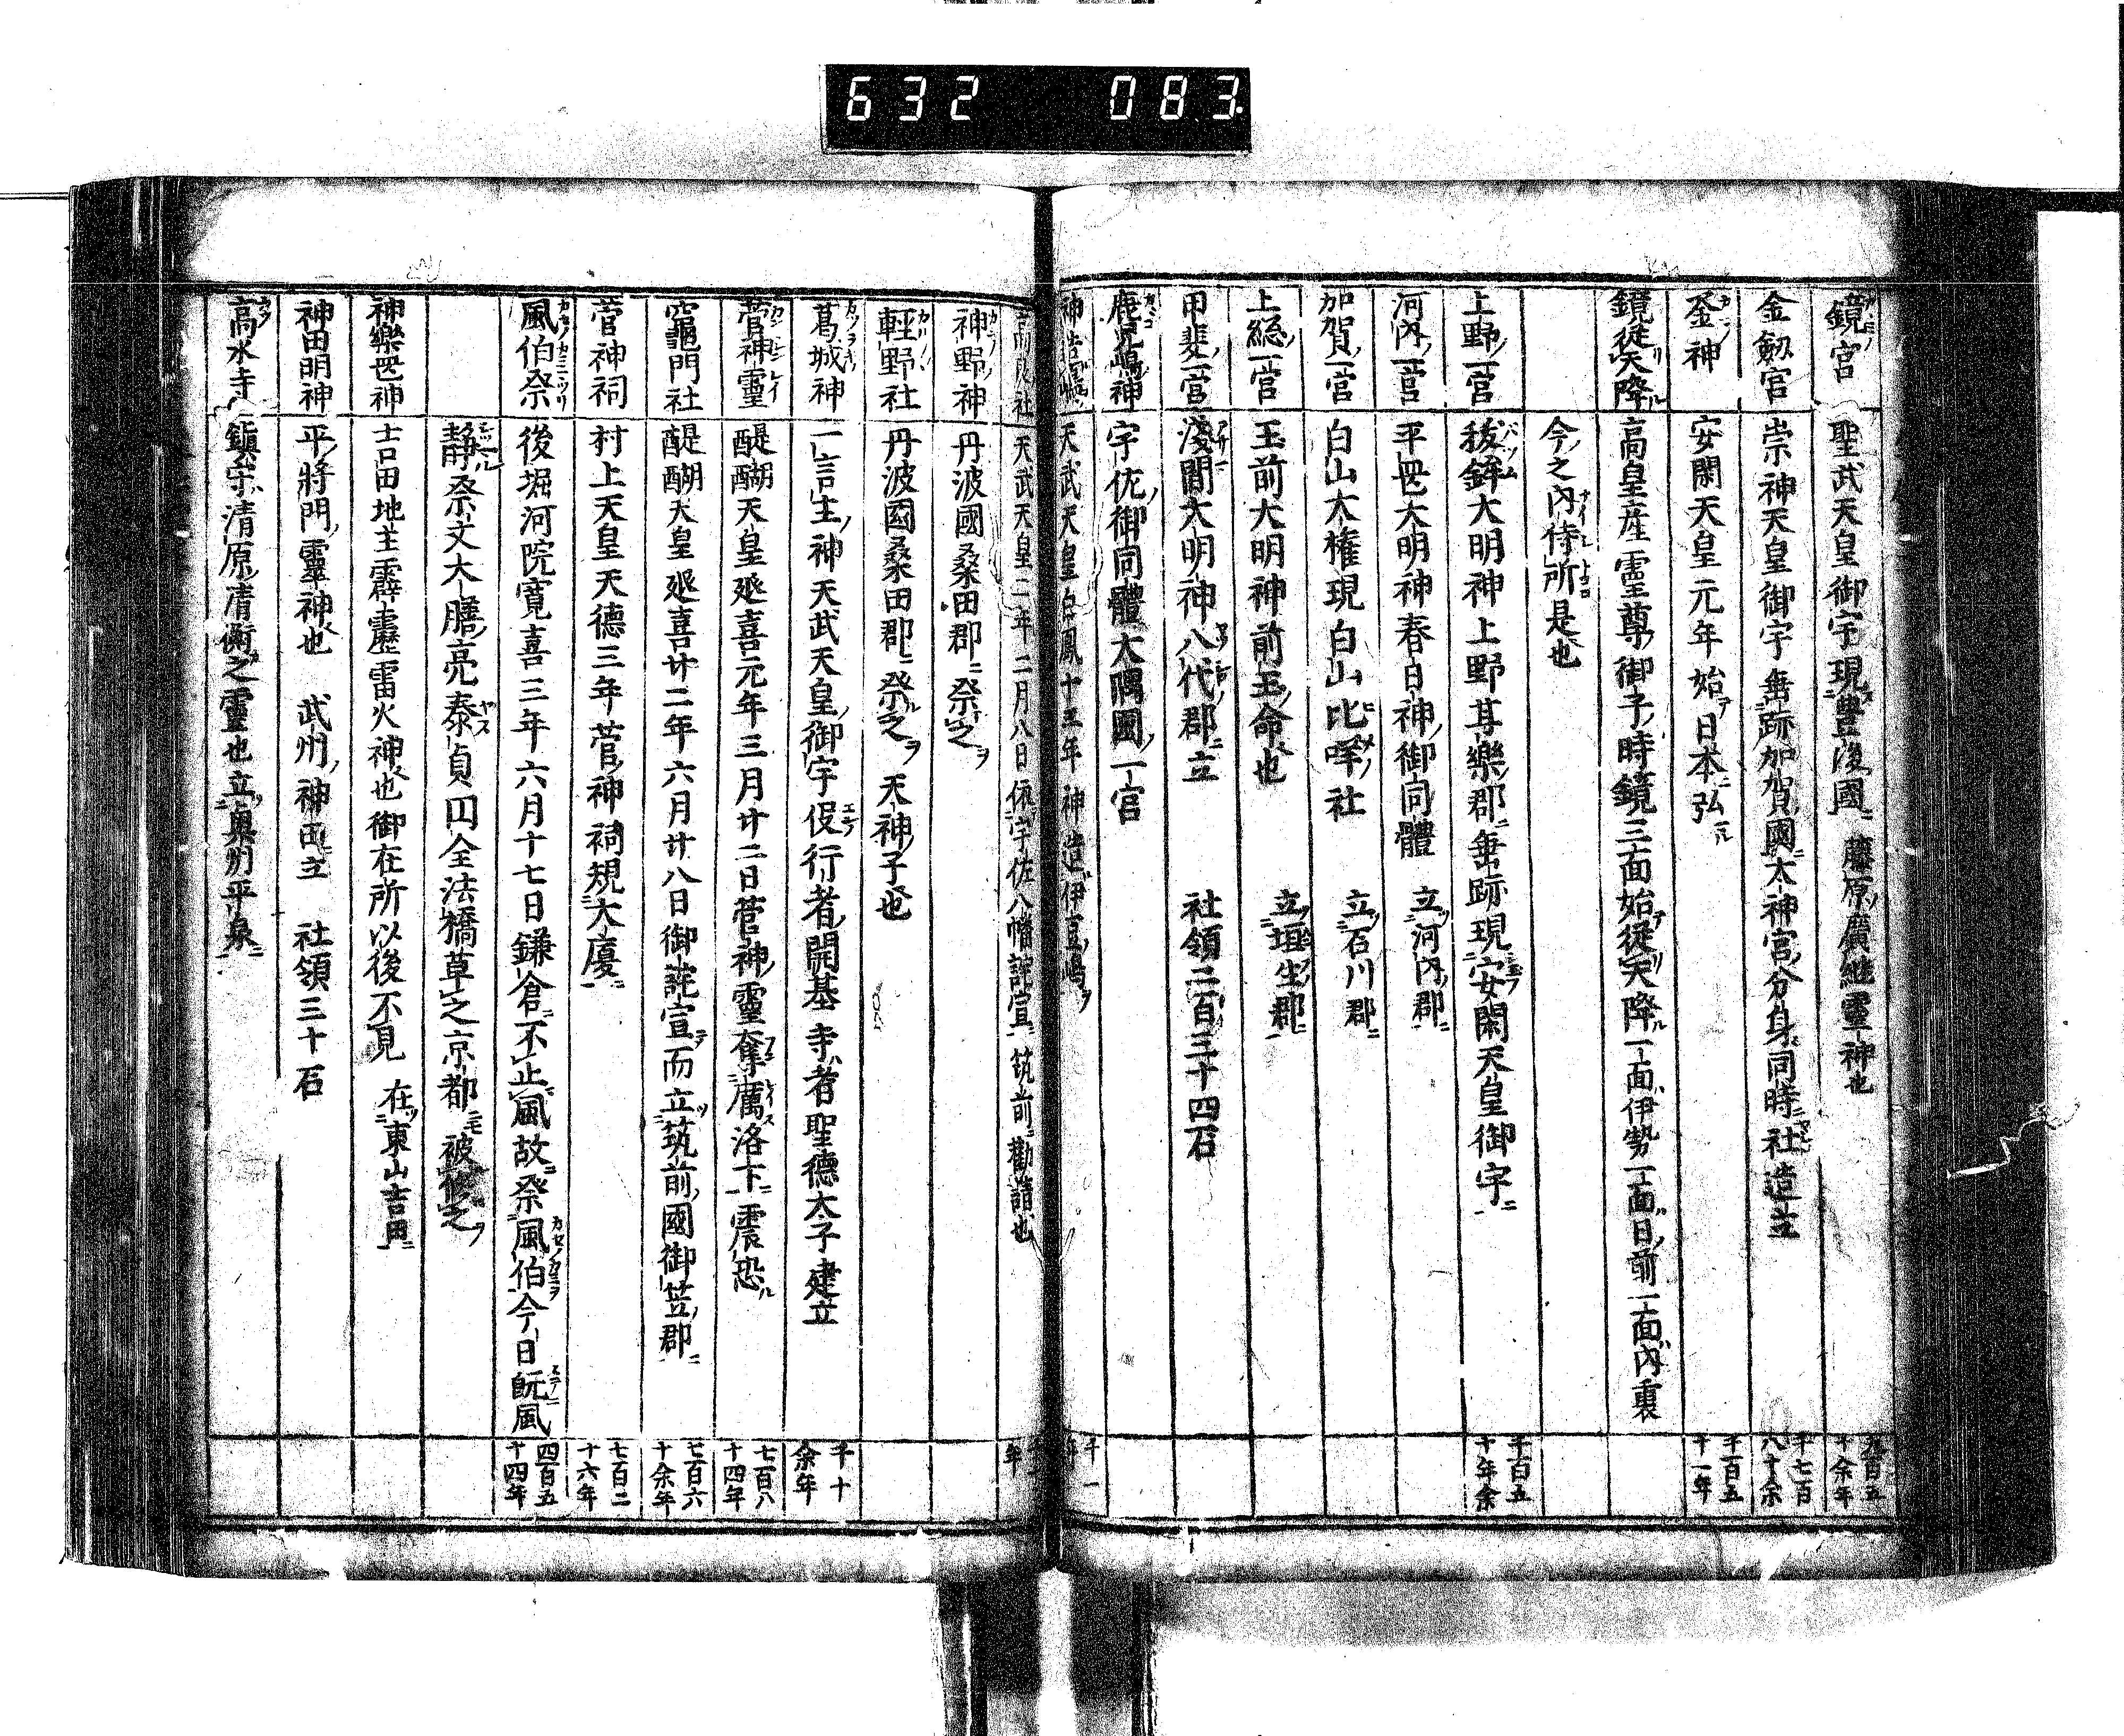 632 083
鏡宮 聖武天皇御宇現豊後國 藤原廣継靈神也 九百五十余年
金劔宮 崇神天皇御宇垂跡加賀國太神宮分身同時社造立 千七百八十余
釜神 安閑天皇元年始日本弘 千百五十一年
鏡從天降 高皇産霊尊御子時鏡三面始從天降一面伊勢一面日前一面內裏
今之內侍所是也
上野一宮 拔鉾大明神上野甘樂郡垂跡現安閑天皇御宇 千百五十年余
河內一宮 平岡大明神春日神御同體 立河內郡
加賀一宮 白山大権現白山比咩社 立石川郡
上総一宮 玉前大明神前玉命也 立埴生郡
甲斐一宮 淺間大明神八代郡立 社領二百三十四石
鹿児嶋神 宇佐御同體大隅國一宮
神造嶋 天武天皇白鳳十三年神造伊豆嶋 千一
社 天武天皇二年二月八日依宇佐八幡託宣筑前勸請也 年
神野神 丹波國桑田郡祭之
輕野社 丹波國桑田郡祭之 天神子也
葛城神 一言主神天武天皇御宇役行者開基寺者聖德太子建立 千十余年
菅神靈 醍醐天皇延喜元年三月廿二日菅神靈奮厲洛下震恐 七百八十四年
竈門社 醍醐天皇延喜廿二年六月廿八日御託宣而立筑前國御笠郡 七百六十余年
菅神祠 村上天皇天德三年菅神祠規大廈 七百二十六年
風伯祭 後堀河院寛喜三年六月十七日鎌倉不止風故祭風伯今日既風 四百五十四年
靜祭文大膳亮泰貞囙全法橋草之京都被修之
神樂岡神 吉田地主霹靂雷火神也御在所以後不見 在東山吉田
神田明神 平將門靈神也 武州神田立 社領三十石
高水寺 鎮守清原清衡之靈也立奥州平泉